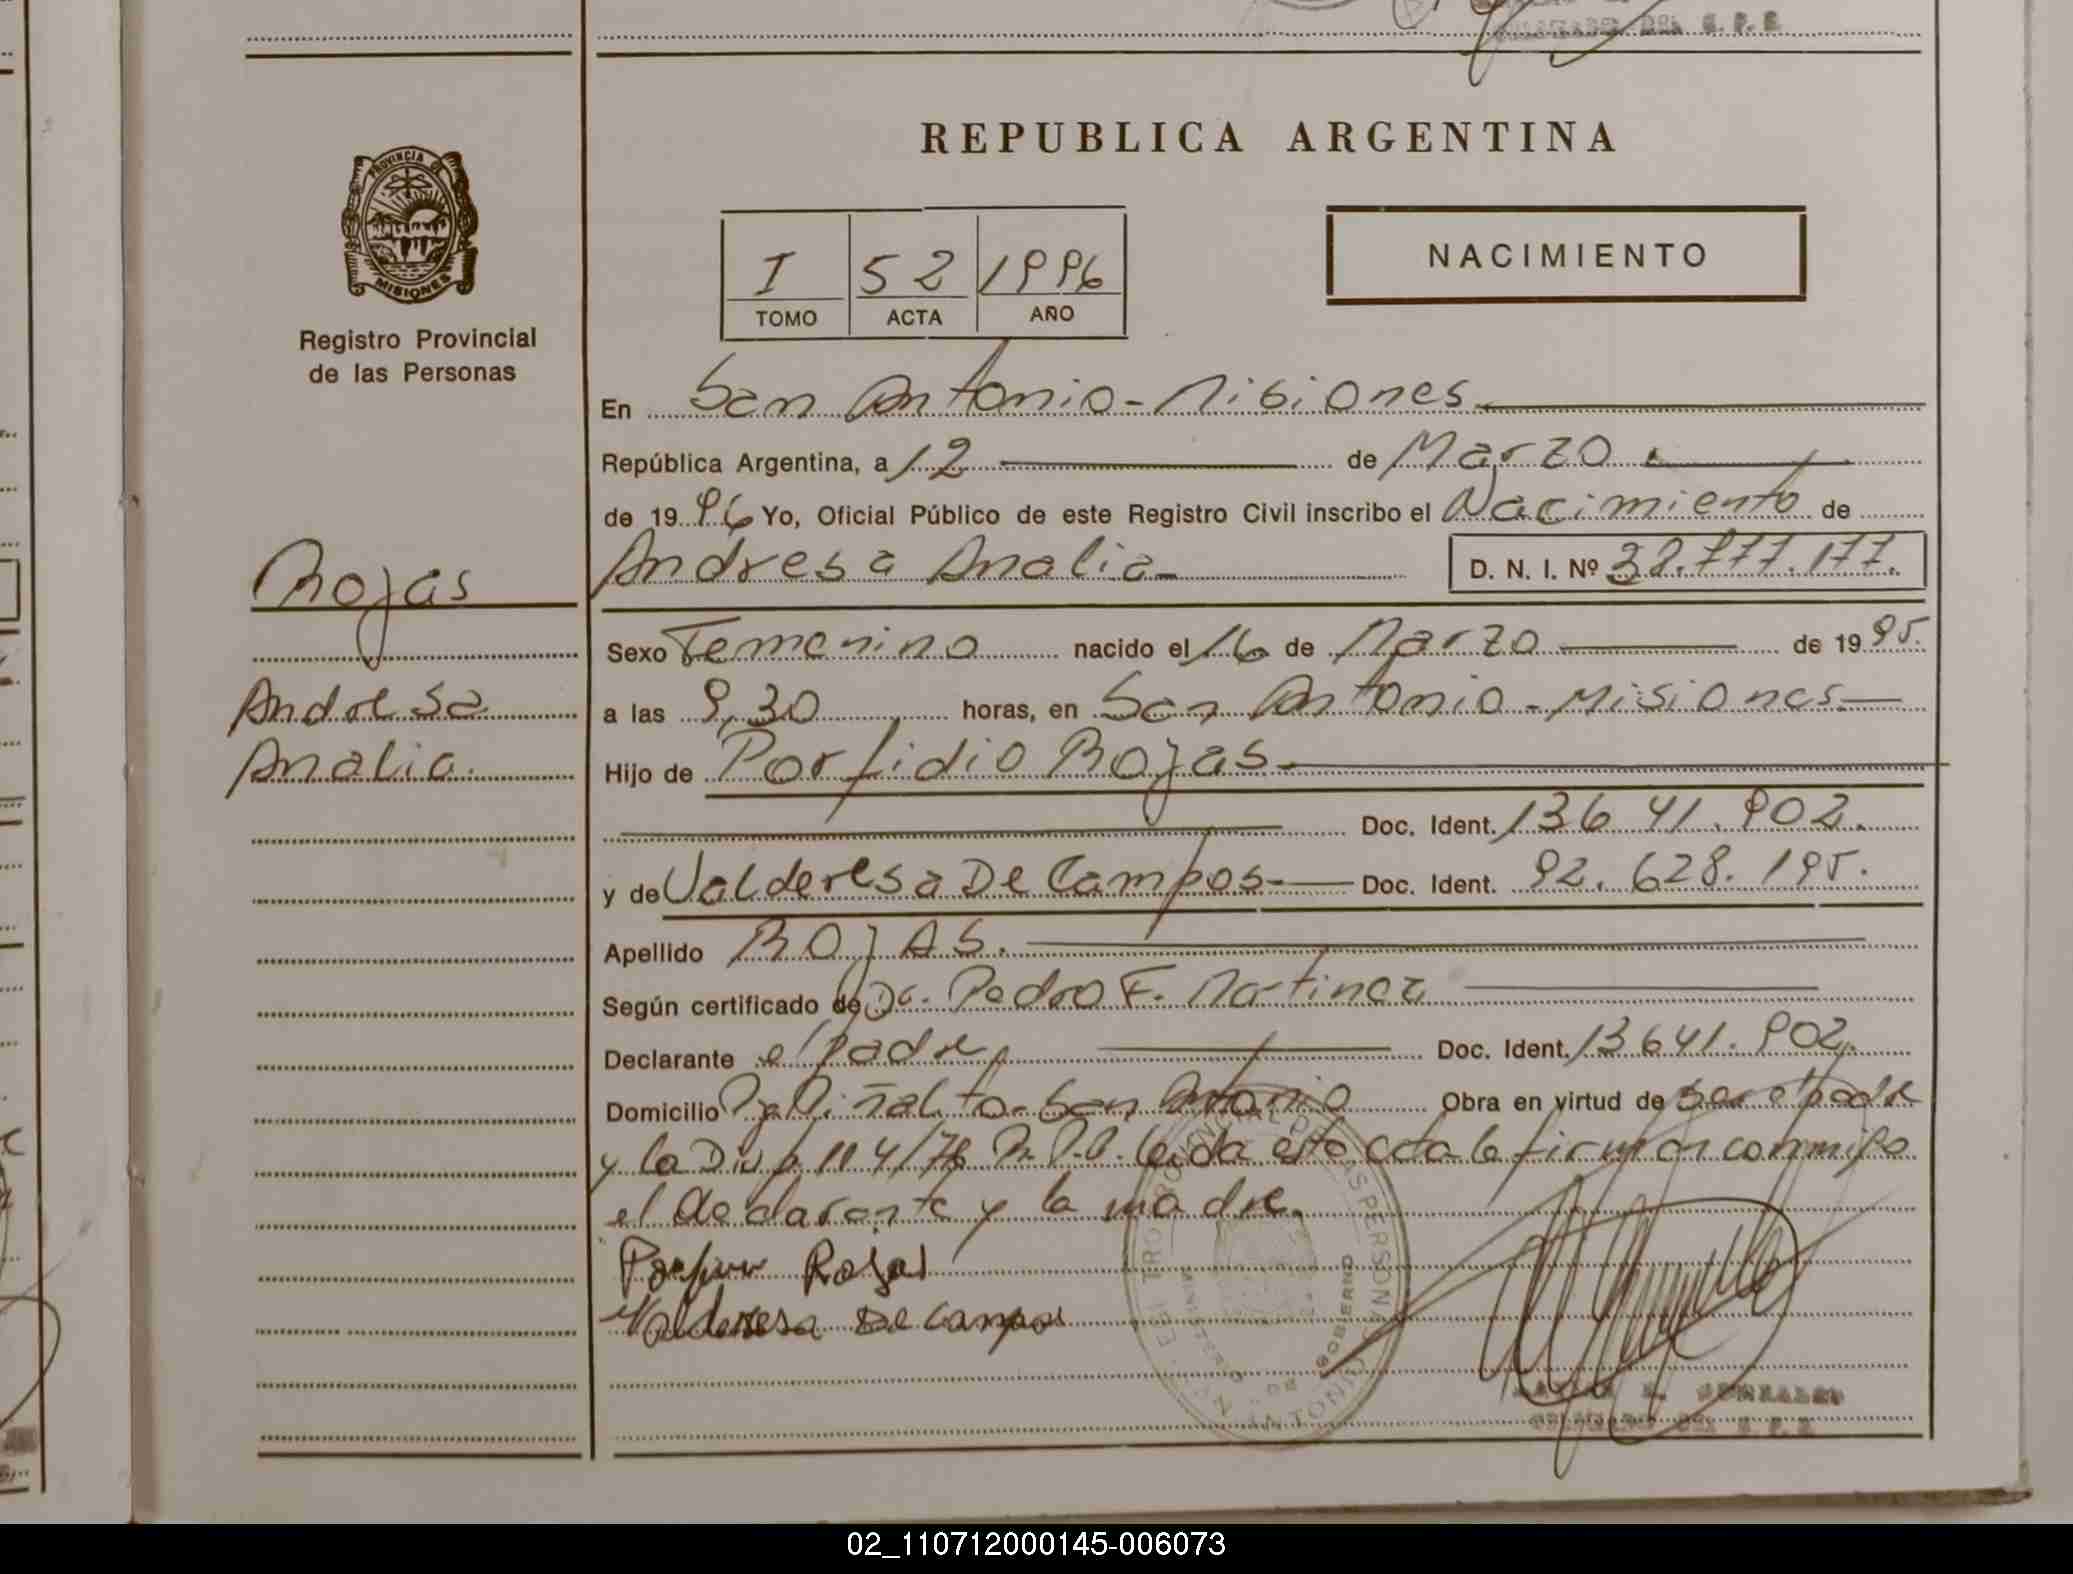 REPUBLICA ARGENTINA
PROVINCIA
MISIONES
Registro Provincial
de las Personas
NACIMIENTO
I 52 1996
TOMO ACTA AÑO
En San Antonio - Misiones
República Argentina, a 12 de Marzo
de 1996 Yo, Oficial Público de este Registro Civil inscribo el Nacimiento de
Andresa Analia D. N. I. Nº 38.777.177.
Rojas
Andresa
Analia.
Sexo Femenino nacido el 16 de Marzo de 1995.
a las 9,30 horas, en San Antonio - Misiones
Hijo de Porfidio Rojas
Doc. Ident. 13641.902.
y de Valderesa De Campos Doc. Ident. 92.628.195.
Apellido ROJAS.
Según certificado de Dr. Pedro F. Martinez
Declarante el padre, Doc. Ident. 13641.902.
Domicilio Piñalito - San Antonio Obra en virtud de ser el padre
y la 114/78 leida esta acta la firman conmigo
el declarante y la madre.
Rojas
Valderesa De Campos
REGISTRO PROVINCIAL DE LAS PERSONAS
MINISTERIO DE GOBIERNO
SAN ANTONIO
GONZALEZ
DELEGADO DEL R. P. P.
02_110712000145-006073